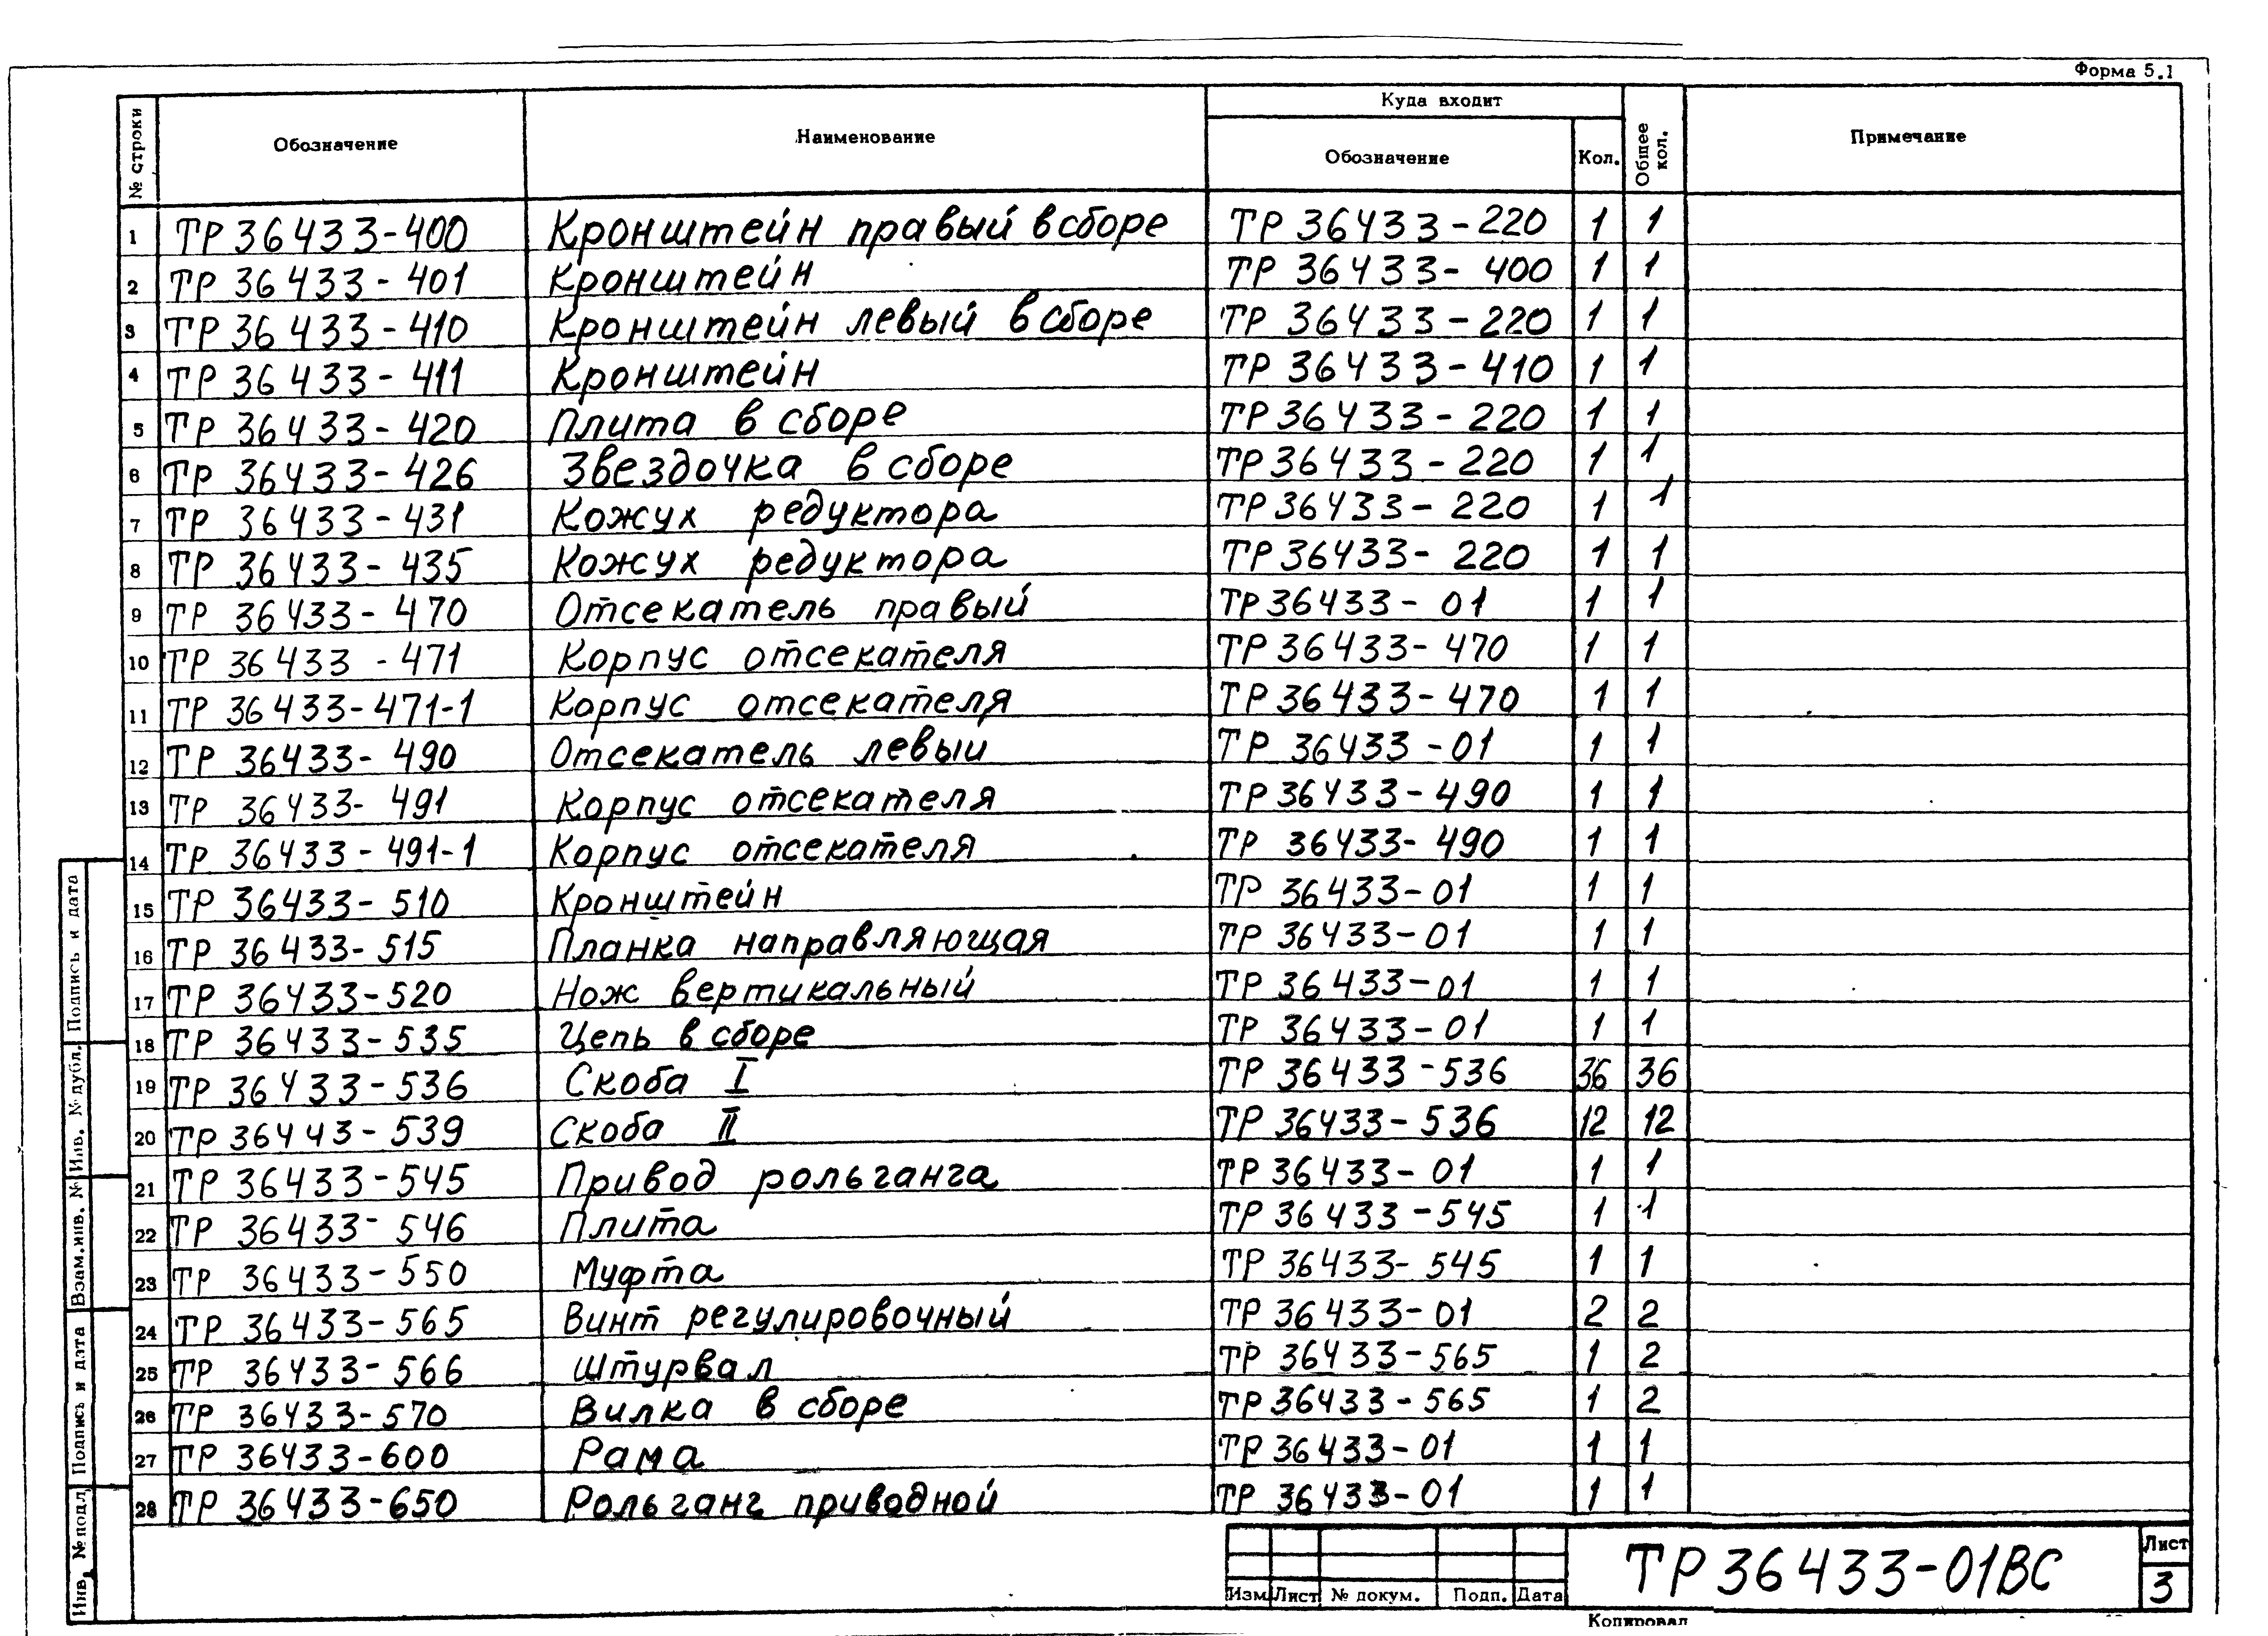 Форма 5.1
№ строки Обозначение Наименование Куда входит Общее кол. Примечание
Обозначение Кол.
1 ТР 36433-400 Кронштейн правый в сборе ТР 36433-220 1 1
2 ТР 36433-401 Кронштейн ТР 36433-400 1 1
3 ТР 36433-410 Кронштейн левый в сборе ТР 36433-220 1 1
4 ТР 36433-411 Кронштейн ТР 36433-410 1 1
5 ТР 36433-420 Плита в сборе ТР 36433-220 1 1
6 ТР 36433-426 Звездочка в сборе ТР 36433-220 1 1
7 ТР 36433-431 Кожух редуктора ТР 36433-220 1 1
8 ТР 36433-435 Кожух редуктора ТР 36433-220 1 1
9 ТР 36433-470 Отсекатель правый ТР 36433-01 1 1
10 ТР 36433-471 Корпус отсекателя ТР 36433-470 1 1
11 ТР 36433-471-1 Корпус отсекателя ТР 36433-470 1 1
12 ТР 36433-490 Отсекатель левый ТР 36433-01 1 1
13 ТР 36433-491 Корпус отсекателя ТР 36433-490 1 1
14 ТР 36433-491-1 Корпус отсекателя ТР 36433-490 1 1
15 ТР 36433-510 Кронштейн ТР 36433-01 1 1
16 ТР 36433-515 Планка направляющая ТР 36433-01 1 1
17 ТР 36433-520 Нож вертикальный ТР 36433-01 1 1
18 ТР 36433-535 Цепь в сборе ТР 36433-01 1 1
19 ТР 36433-536 Скоба I ТР 36433-536 36 36
20 ТР 36443-539 Скоба II ТР 36433-536 12 12
21 ТР 36433-545 Привод рольганга ТР 36433-01 1 1
22 ТР 36433-546 Плита ТР 36433-545 1 1
23 ТР 36433-550 Муфта ТР 36433-545 1 1
24 ТР 36433-565 Винт регулировочный ТР 36433-01 2 2
25 ТР 36433-566 Штурвал ТР 36433-565 1 2
26 ТР 36433-570 Вилка в сборе ТР 36433-565 1 2
27 ТР 36433-600 Рама ТР 36433-01 1 1
28 ТР 36433-650 Рольганг приводной ТР 36433-01 1 1
Подпись и дата
Инв. № дубл.
Взам. инв. №
Подпись и дата
Инв. № подл
Изм Лист № докум. Подп. Дата
ТР 36433-01ВС
Лист
3
Копировал